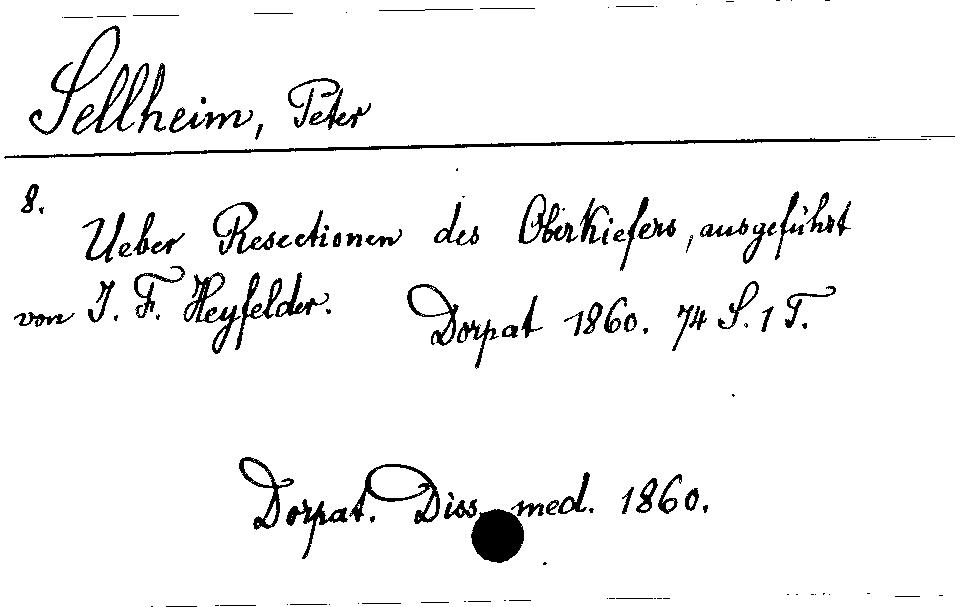 Sellheim, Peter
8.
Ueber Resectionen des Oberkiefers, ausgeführt
von J. F. Heyfelder. Dorpat 1860. 74 S. 1 T.
Dorpat. Diss. med. 1860.